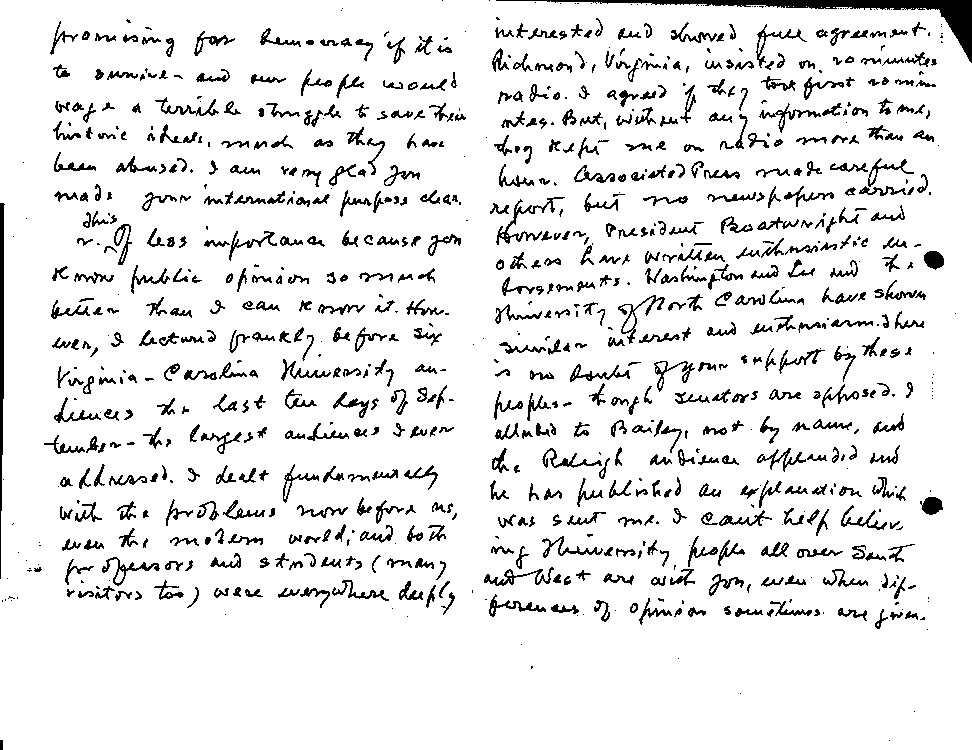 promising for democracy if it is
to survive - and our people would
wage a terrible struggle to save their
historic ideals, much as they have
been abused. I am very glad you
made your international purpose clear.
this
2. Of less importance because you
know public opinion so much
better than I can know it. How-
ever, I lectured frankly before six
Virginia - Carolina University au-
diences the last ten days of Sep-
tember - the largest audiences I ever
addressed. I dealt fundamentally
with the problems now before us,
even the modern world; and both
professors and students (many
visitors too) were everywhere deeply
interested and showed full agreement.
Richmond, Virginia, insisted on 20 minutes
radio. I agreed if they took first 20 min-
utes. But, without any information to me,
they kept me on radio more than an
hour. Associated Press made careful
report, but no newspapers carried.
However, President Boatwright and
others have written enthusiastic en-
dorsements. Washington and Lee and the
University of North Carolina have shown
similar interest and enthusiasm. There
is no doubt of your support by these
peoples - though senators are opposed. I
alluded to Bailey, not by name, and
the Raleigh audience applauded and
he has published an explanation which
was sent me. I can't help believ-
ing University people all over South
and West are with you, even when dif-
ferences of opinion sometimes are given.